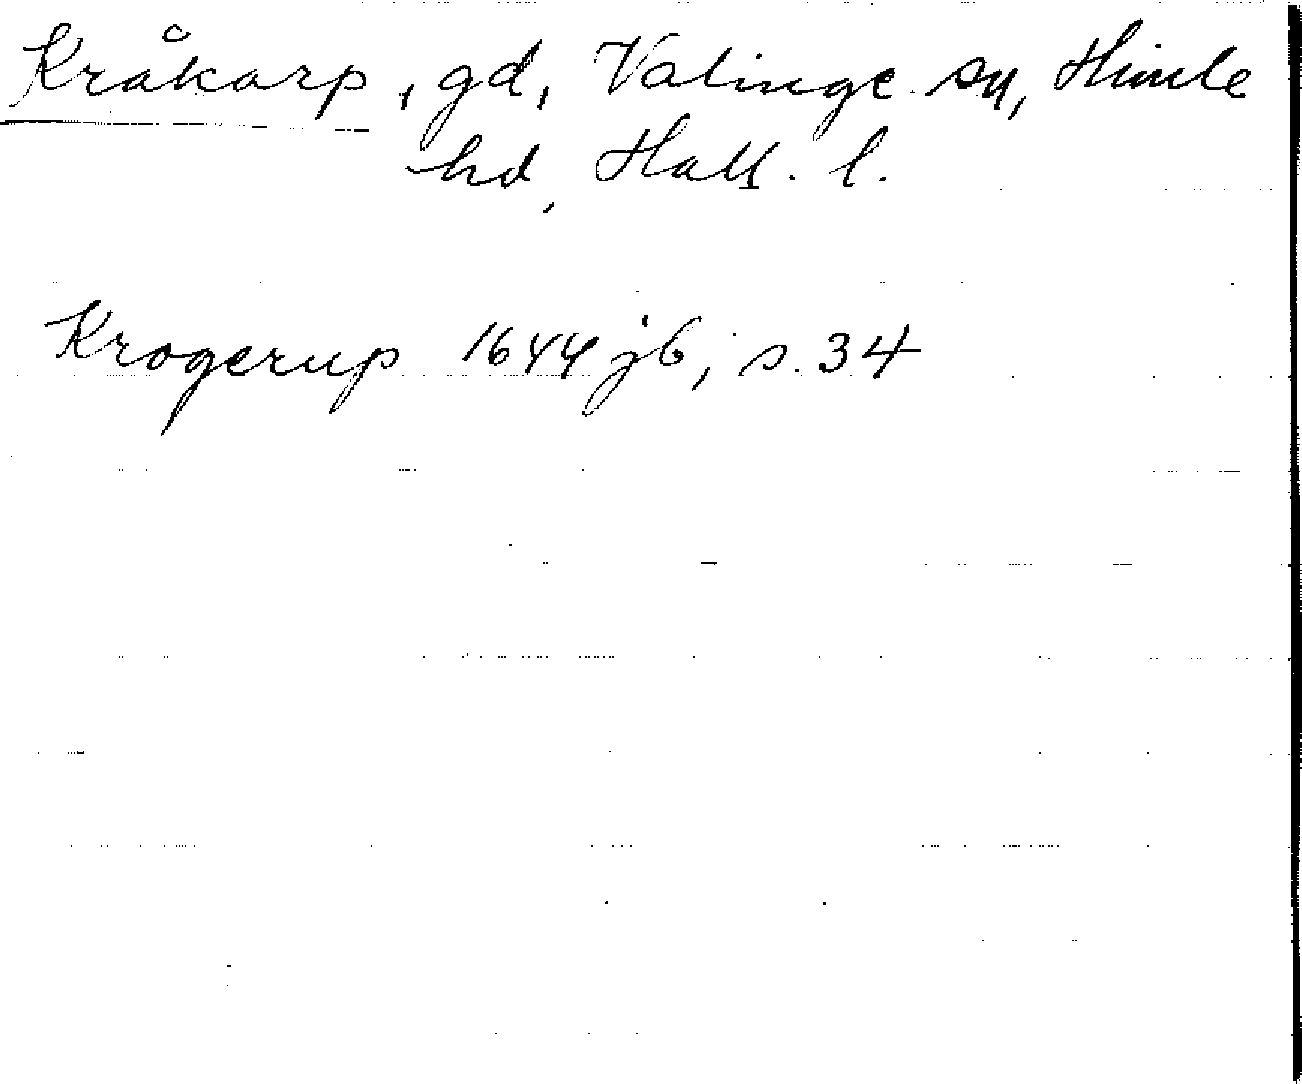 Kråkarp, gd, Valinge sn, Himle
hd, Hall. l.
Krogerup 1644 jb, s. 34